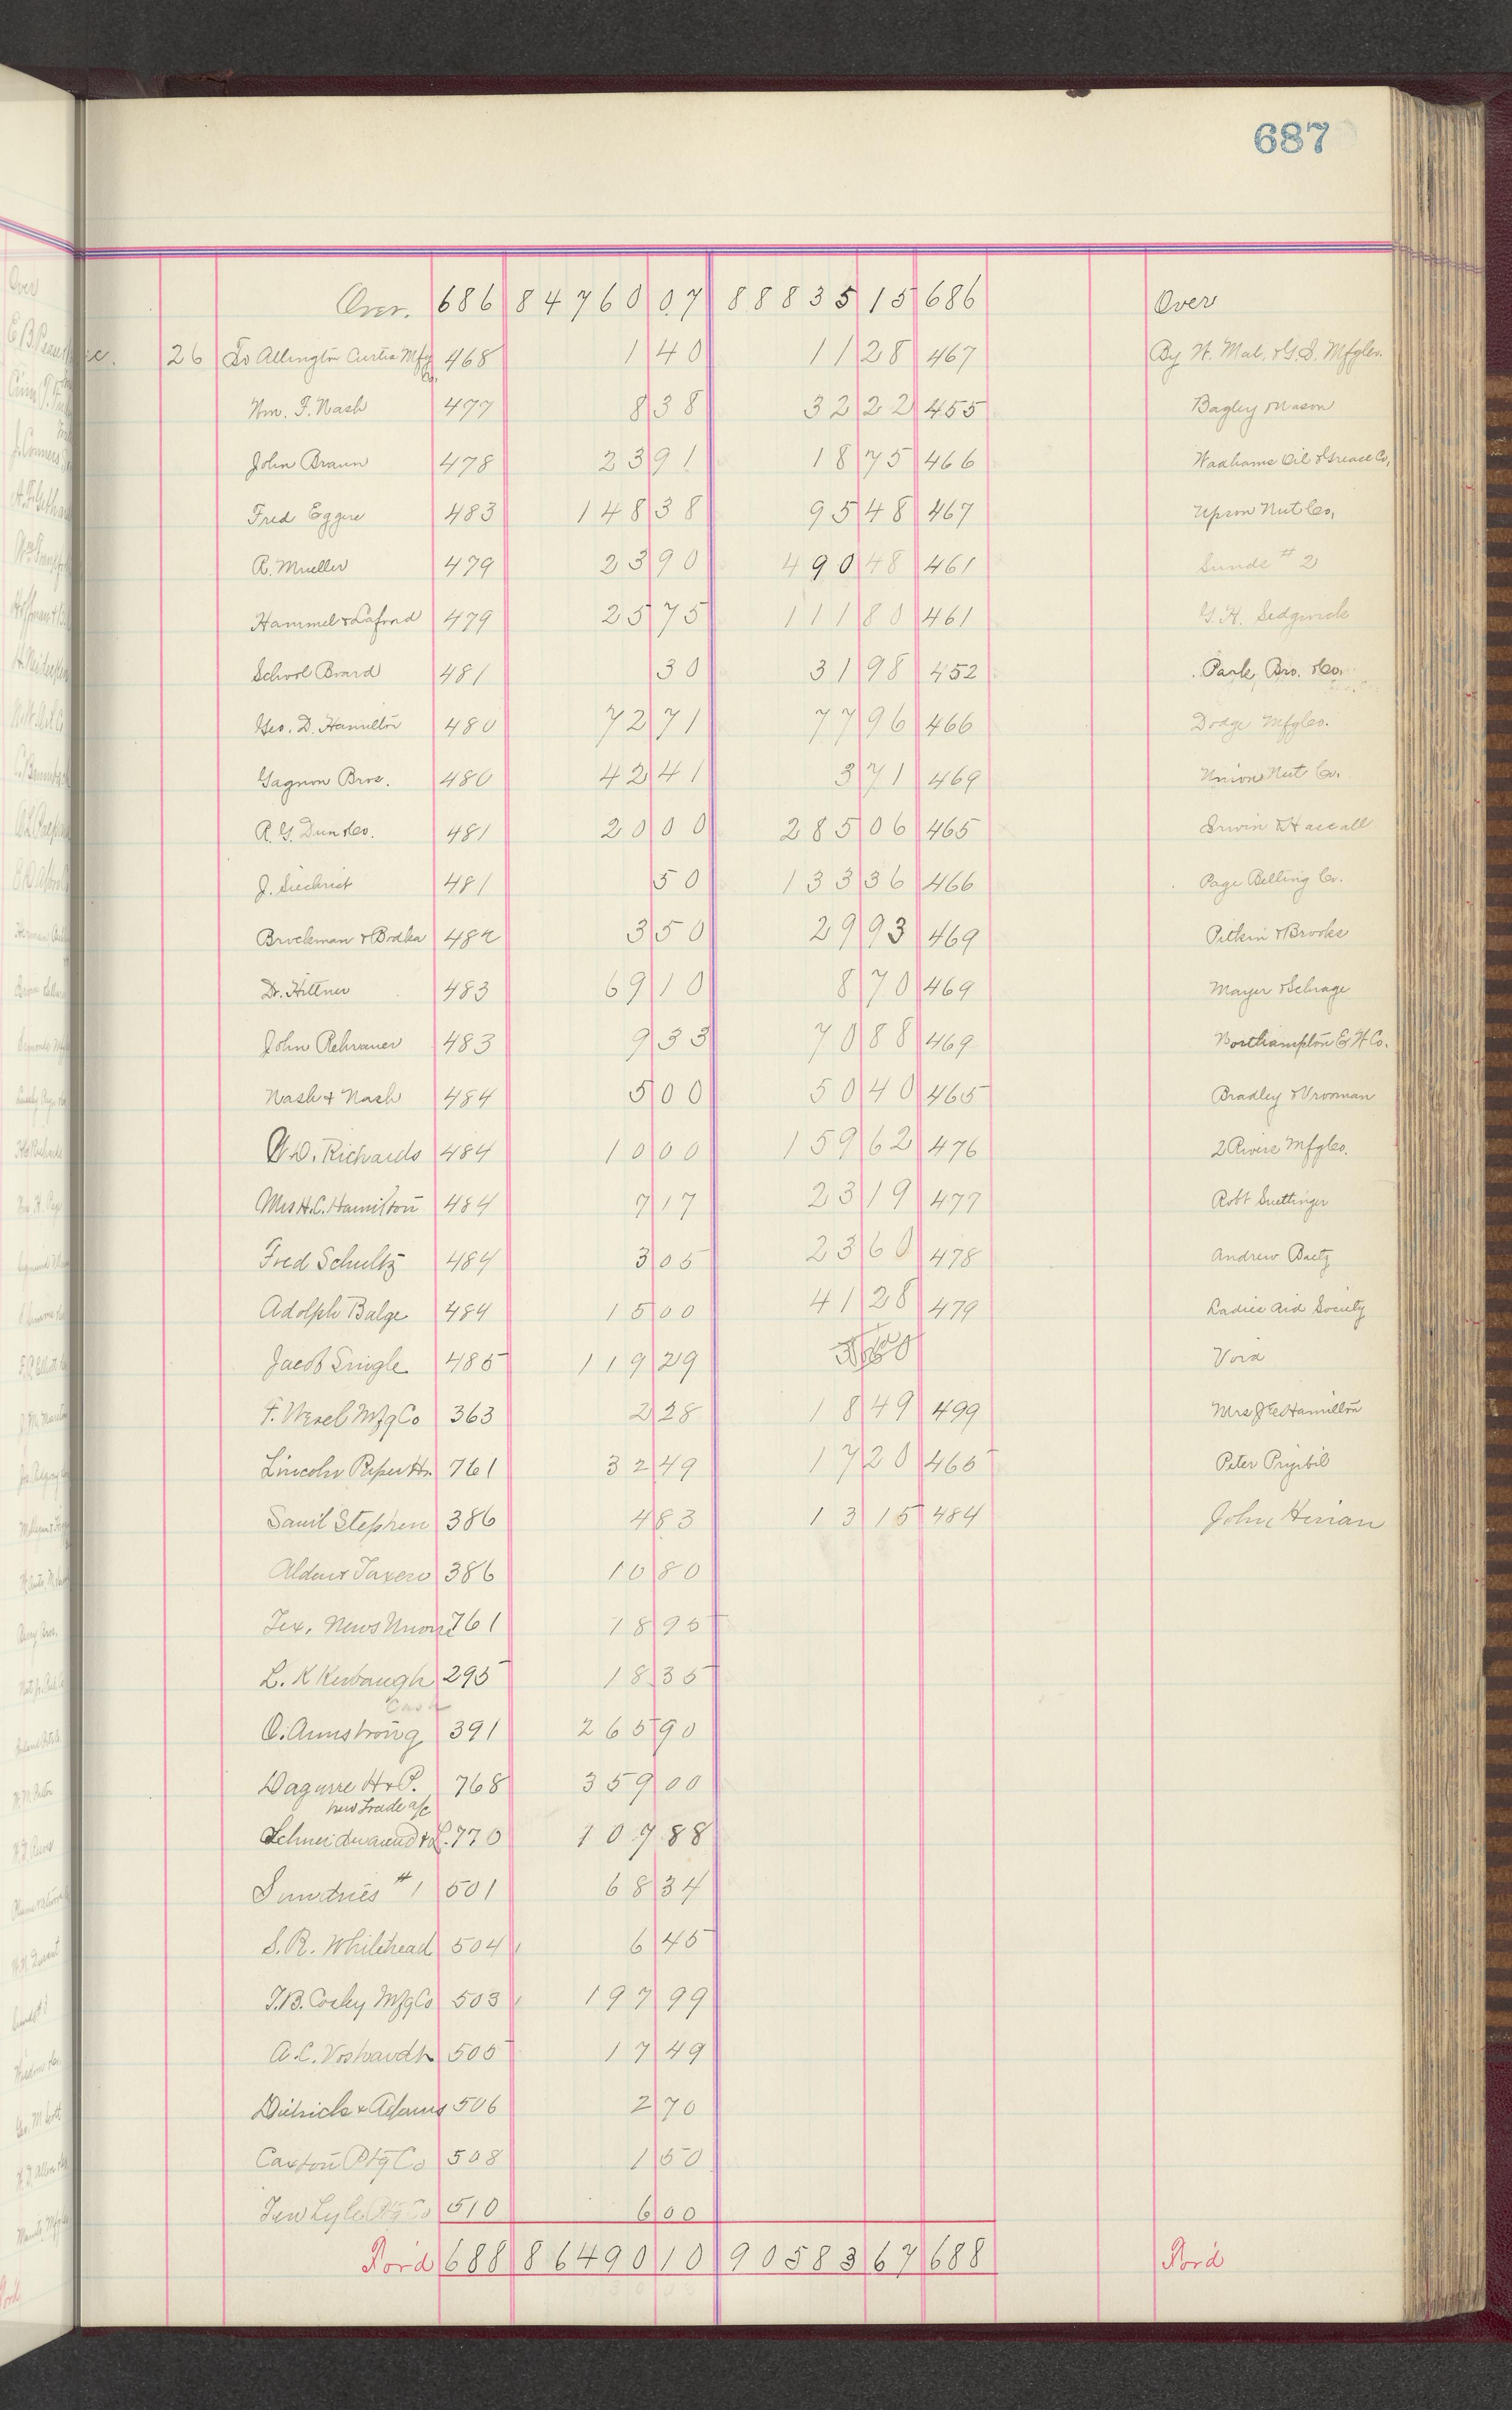 687
Over. 686 84760 07 88835 15 686 Over
26 To Allington Curtis Mfg Co. 468 1 40 11 28 467 By N. Mal. & G. S. Mfg Co.
Wm. F. Nash 477 8 38 32 22 455 Bagley & Mason
John Braun 478 23 91 18 75 466 Wadhams Oil & Grease Co,
Fred Eggers 483 148 38 95 48 467 Upson Nut Co,
R. Mueller 479 23 90 490 48 461 Sunds # 2
Hammel & Lafond 479 25 75 111 80 461 G. H. Sedgwick
School Board 481 30 31 98 452 Park, Bro. & Co.
Geo. D. Hamilton 480 72 71 77 96 466 Dodge Mfg Co.
Gagnon Bros. 480 42 41 3 71 469 Union Nut Co.
R. G. Dun & Co. 481 20 00 285 06 465 Erwin & Hascall
J. Siechrist 481 50 133 36 466 Page Belting Co.
Brockman & Bodka 482 3 50 29 93 469 Pitkin & Brooks
Dr. Hittner 483 69 10 8 70 469 Mayer & Schrage
John Rehrauer 483 9 33 70 88 469 Northampton E. W Co.
Nash & Nash 484 5 00 50 40 465 Bradley & Vrooman
W. D. Richards 484 10 00 159 62 476 2 Rivers Mfg Co.
Mrs H. C. Hamilton 484 7 17 23 19 477 Robt Suettinger
Fred Schultz 484 3 05 23 60 478 Andrew Baetz
Adolph Balge 484 15 00 41 28 479 Ladies Aid Society
Jacob Single 485 119 29 Void
F. Wesel Mfg Co 363 2 28 18 49 499 Mrs H C Hamilton
Lincoln Paper Ho. 761 32 49 17 20 465 Peter Pryibil
Saml Stephen 386 4 83 13 15 484 John
386 10 80
Tex. News Union 761 18 95
L. K Kerbaugh 295 18 35
Cash
O. Armstrong 391 265 90
Daguerre H & P. 768 359 00
new Trade a/c
Schneidwend & L. 770 107 88
Sundries # 1 501 68 34
S. R. Whitehead 504 6 45
J. B. Cosby Mfg Co 503 197 99
A. C. Vosbaugh 505 17 49
Dietrich & Adams 506 2 70
Caxton Ptg Co 508 1 50
Lyle Ptg Co 510 6 00
For'd 688 86490 10 90583 67 688 For'd